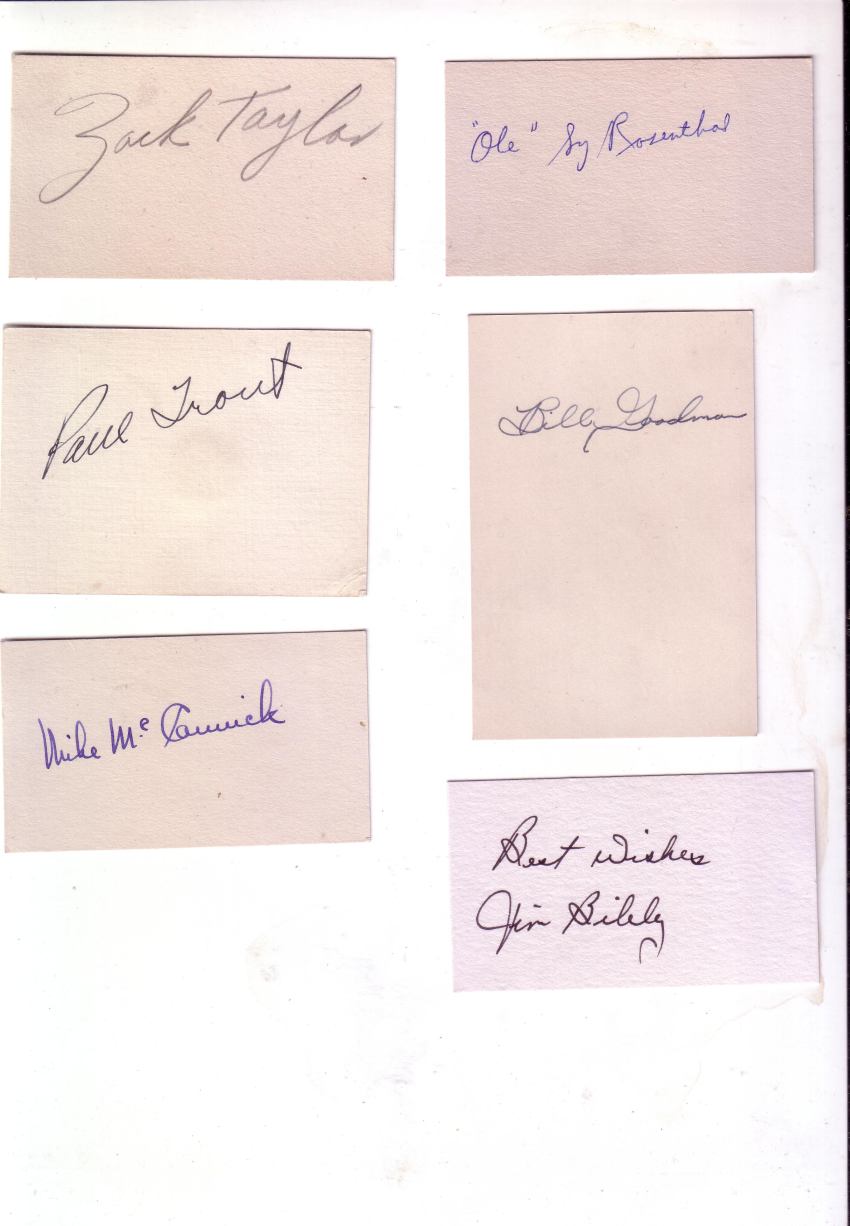 Zack Taylor
"Ole" Sy Rosenthal
Paul Trout
Billy Goodman
Mike McCormick
Best Wishes
Jim Bilby